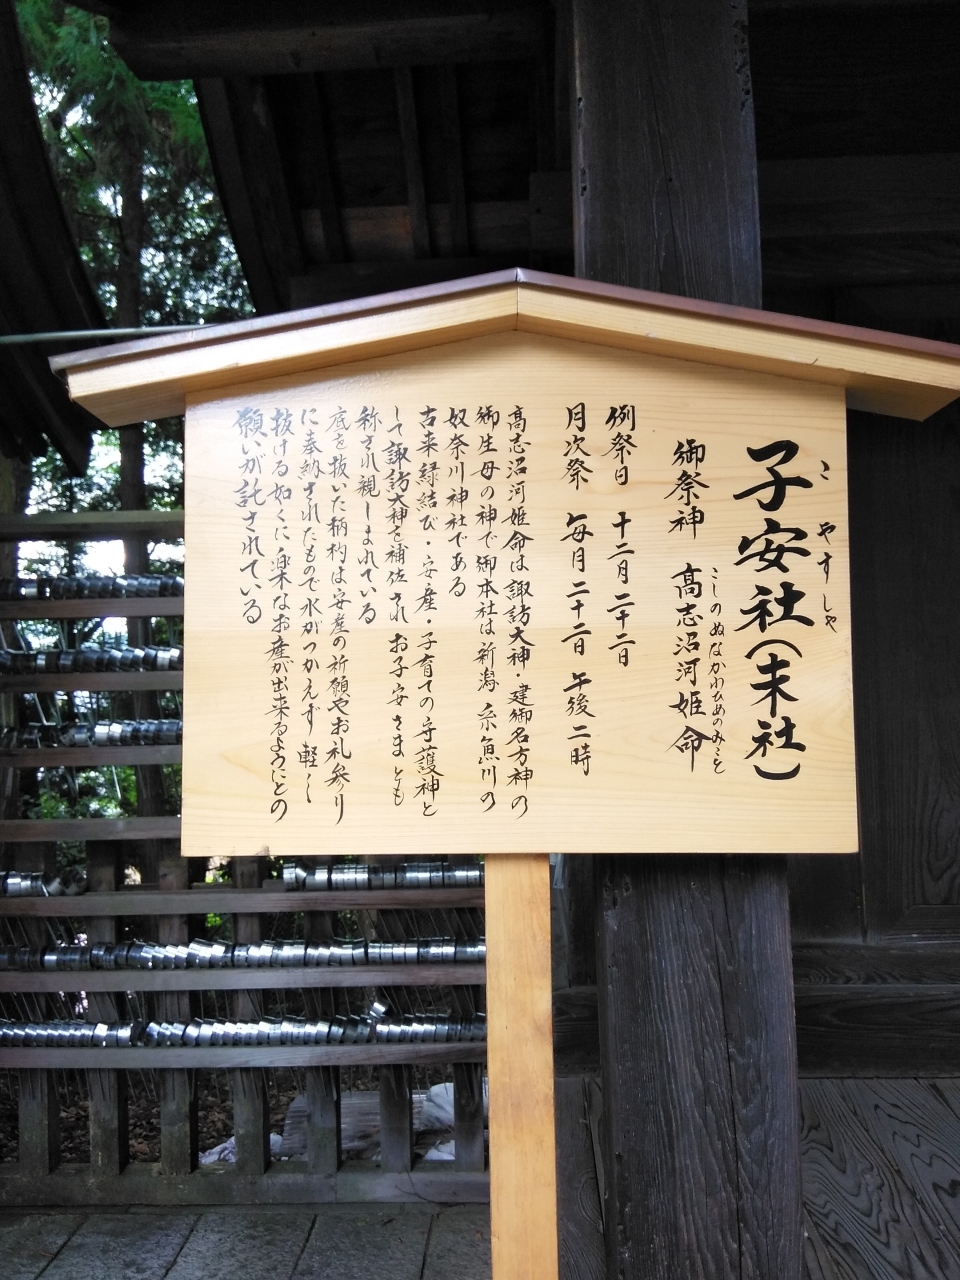 こ やす しゃ
子安社(末社)
こしのぬなかわひめのみこと
御祭神 高志沼河姫命
例祭日 十二月二十二日
月次祭 毎月二十二日 午後二時
高志沼河姫命は諏訪大神・建御名方神の
御生母の神で御本社は新潟 糸魚川の
奴奈川神社である
古来縁結び・安産・子育ての守護神と
して諏訪大神を補佐され お子安さまとも
称され親しまれている
底を抜いた柄杓は安産の祈願やお礼参り
に奉納されたもので水がつかえず軽く
抜ける如くに楽なお産が出来るようにとの
願いが託されている